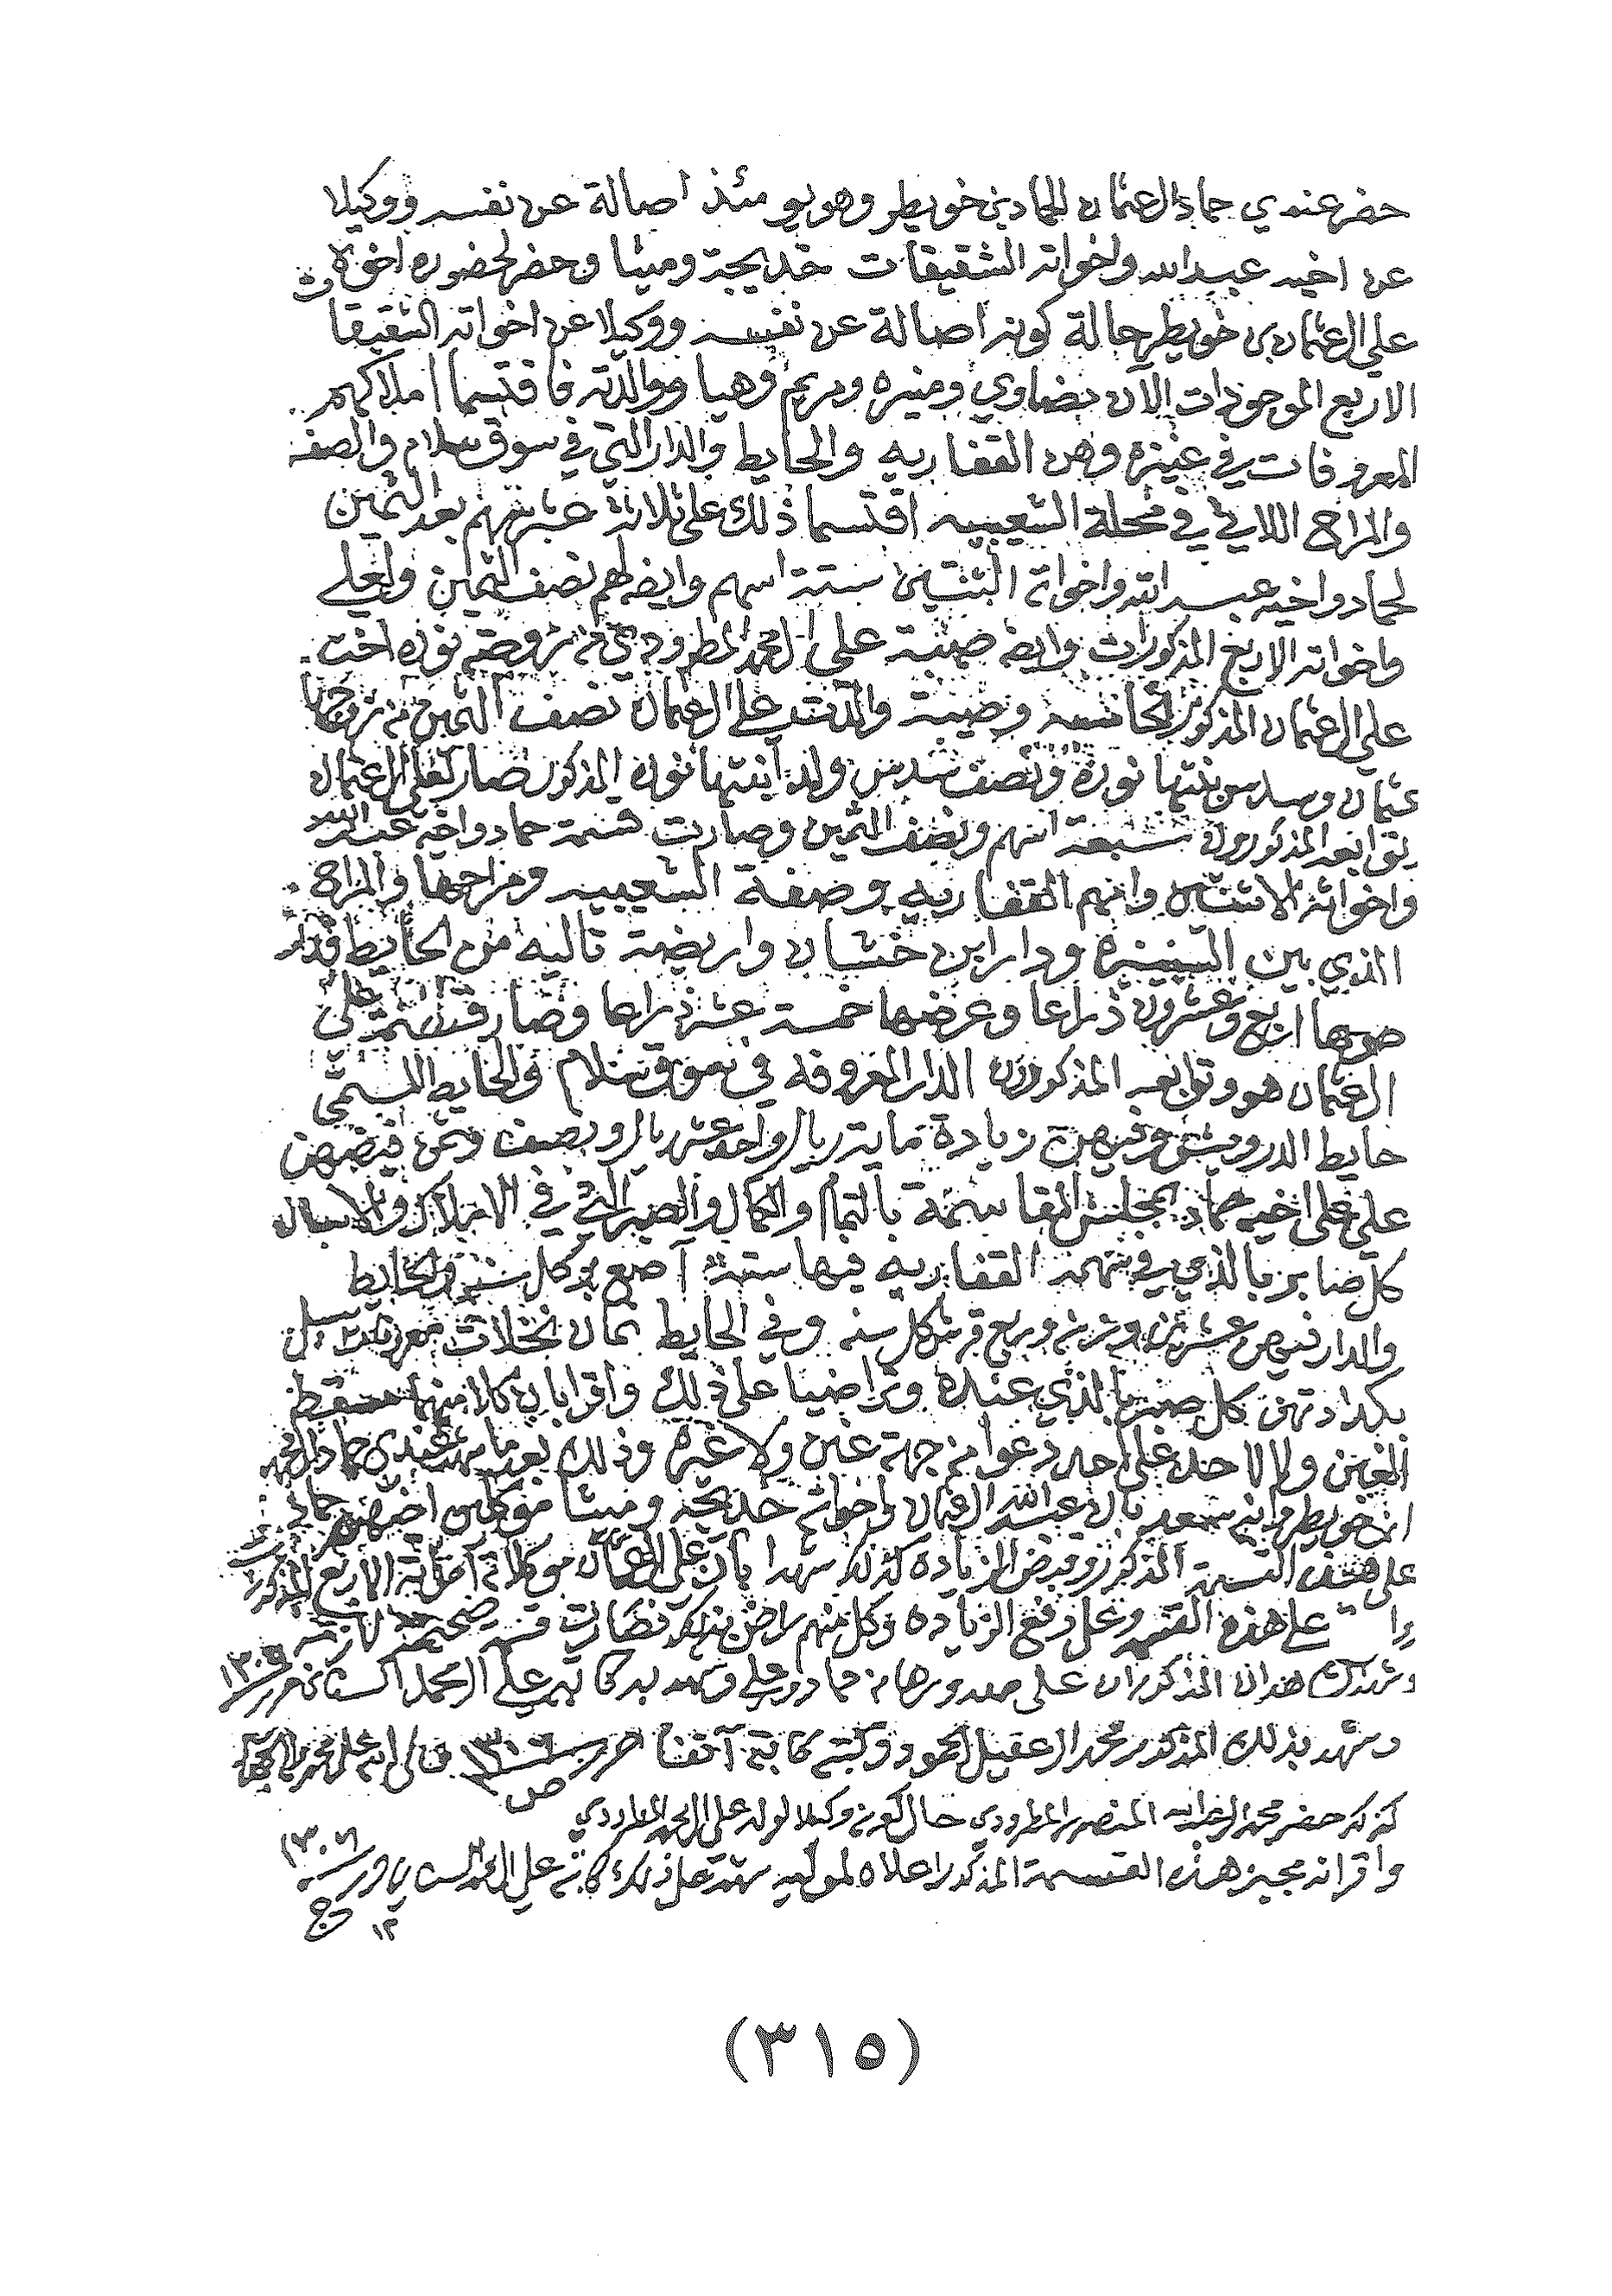 حضر عندي حماد العثمان الحماد بن خويطر وهو يومئذ اصالة عن نفسه ووكيلا
عن اخيه عبدالله ولخواته الشقيقات خديجة وميثا وحضر لحضوره اخوه
علي العثمان بن خويطر حالة كونه اصالة عن نفسه ووكيلا عن اخواته الشقيقات
الاربع الموجودات الان بضاوي ومنيره ومريم وهيا ووالدته فاقتسما املاكهم
المعروفات في عنيزه وهن القفاريه والحايط والدار التي في سوق سلام والصفه
والمراح اللاتي في محلة الشعيبيه اقتسما ذلك على ثلاثة عشر سهم بعد الثمين
لحماد واخيه عبدالله واخواته الثنتين ستة اسهم وايضا لهم نصف الثمين ولعلي
واخواته الاربع المذكورات وايضا علي المحمد المطرودي من زوجته نوره اخت
علي العثمان المذكور والدته علي العثمان نصف الثمين من زوجها
عثمان وسدس بنتها نورة ونصف سدس ولد ابنتها نوره المذكور صار لعلي العثمان
توابعه المذكورون سبعة اسهم ونصف الثمين وصارت قسمة حماد واخيه عبدالله
واخواته الاثنتين وامهم القفاريه وصفة الشعيبيه ومراحها والمراح
الذي بين ودار ابن خشان وارضيه تاليه من الحايط قدر
اربع وعشرون ذراعا وعرضها خمسة عشر ذراعا وصار قسمة علي
العثمان هو وتوابعه المذكورون الدار المعروفه في سوق سلام والحايط المسمى
حايط الدرويش وفيهن زيادة ماية ريال واحد عشر ريال ونصف
علي على اخيه حماد بمجلس المقاسمة بالتمام والكمال والصبر التي في الاملاك والاسبال
كل صابر بالذي في سهمه القفاريه فيها ستة آصع بر كل سنه والحايط
والدار فيهن وربع قرش كل سنه وفي الحايط ثمان نخلات معروفات سبيل
كل صبر بالذي عنده وتراضيا على ذلك واقرا بان كلا منهما مسقط
الغبن ولا لاحد على احد دعوا من جهة غبن ولا غيره وذلك بعد ما شهد عندي حماد المحمد
ابن خويطر وابنه سعد بان عبدالله العثمان واخواته خديجه وميثا موكلين اخيهم حماد
على هذه القسمة المذكوره وقبض الزياده كذلك شهدا بان علي العثمان موكلاته اخواته الاربع المذكورات
على هذه القسمه وعلى دفع الزياده وكل منهم راض بذلك فصارت قسمة صحيحة لازمه
وشهد بذلك المذكوران على صدوره من حماد وعلي وشهد به كاتبه علي المحمد السناني حرر ١٣٠٩
وشهد بذلك المذكور محمد العقيل الحمود وكتبه كاتبه آنفا حرر ١٣٠٦
ص
كذلك حضر محمد العبدالله المنصور المطرودي حال كونه وكيلا لولده علي المحمد المطرودي
واقر انه مجيز هذه القسمة المذكور اعلاه لموكليه شهد على ذلك كاتبه علي المحمد السناني وحرر ١٣٠٦
١٢
(٣١٥)